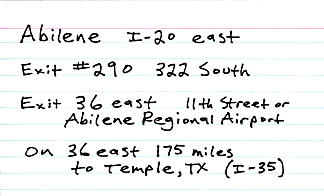 Abilene I-20 east
Exit #290 322 South
Exit 36 east 11th Street or
Abilene Regional Airport
On 36 east 175 miles
to Temple, TX (I-35)